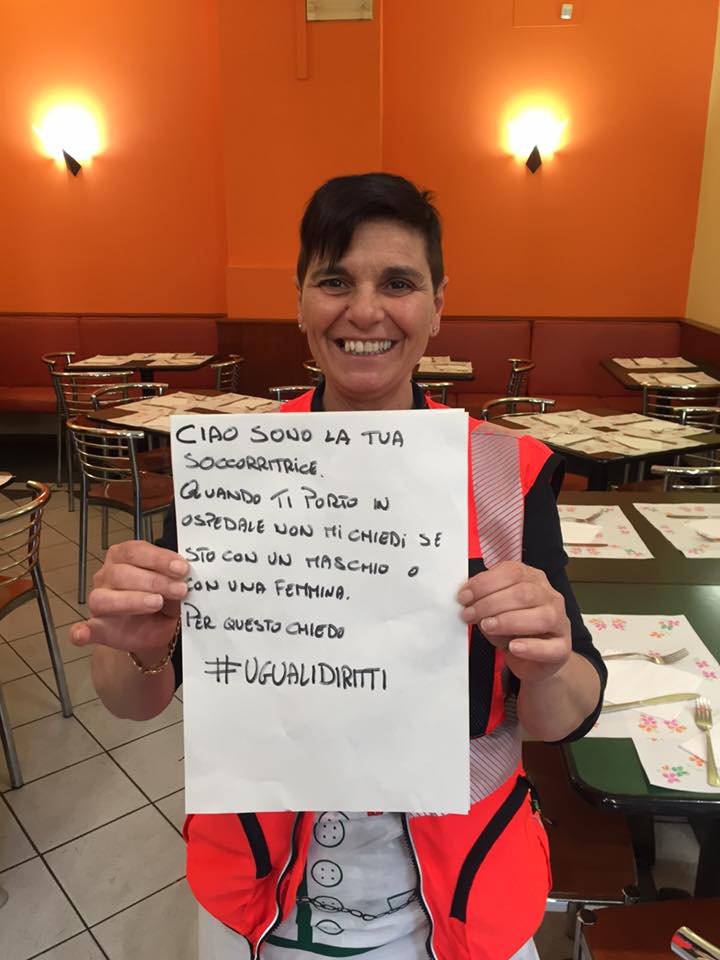 CIAO SONO LA TUA
SOCCORRITRICE.
QUANDO TI PORTO IN
OSPEDALE NON MI CHIEDI SE
STO CON UN MASCHIO O
CON UNA FEMMINA.
PER QUESTO CHIEDO
#UGUALIDIRITTI